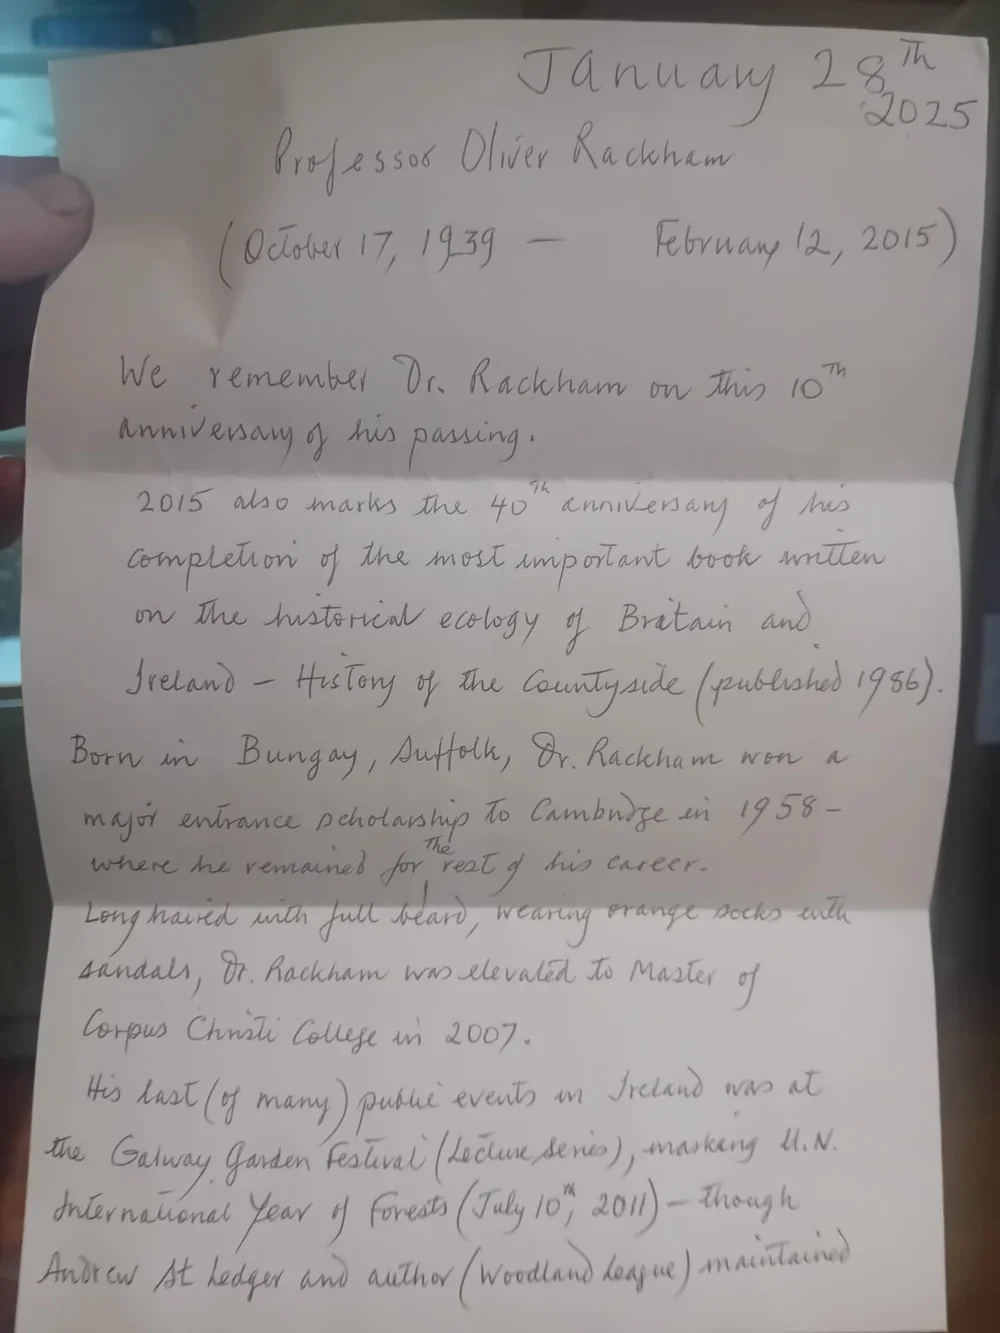 January 28Th
2025
Professor Oliver Rackham
(October 17, 1939 — February 12, 2015)
We remember Dr. Rackham on this 10Th
anniversary of his passing.
2015 also marks the 40Th anniversary of his
completion of the most important book written
on the historical ecology of Britain and
Ireland – History of the Countryside (published 1986).
Born in Bungay, Suffolk, Dr. Rackham won a
major entrance scholarship to Cambridge in 1958 –
where he remained for The rest of his career.
Long haired with full beard, wearing orange socks with
sandals, Dr. Rackham was elevated to Master of
Corpus Christi College in 2007.
His last (of many) public events in Ireland was at
the Galway Garden Festival (Lecture Series), marking U.N.
International Year of Forests (July 10th, 2011) – though
Andrew St Ledger and author (Woodland League) maintained